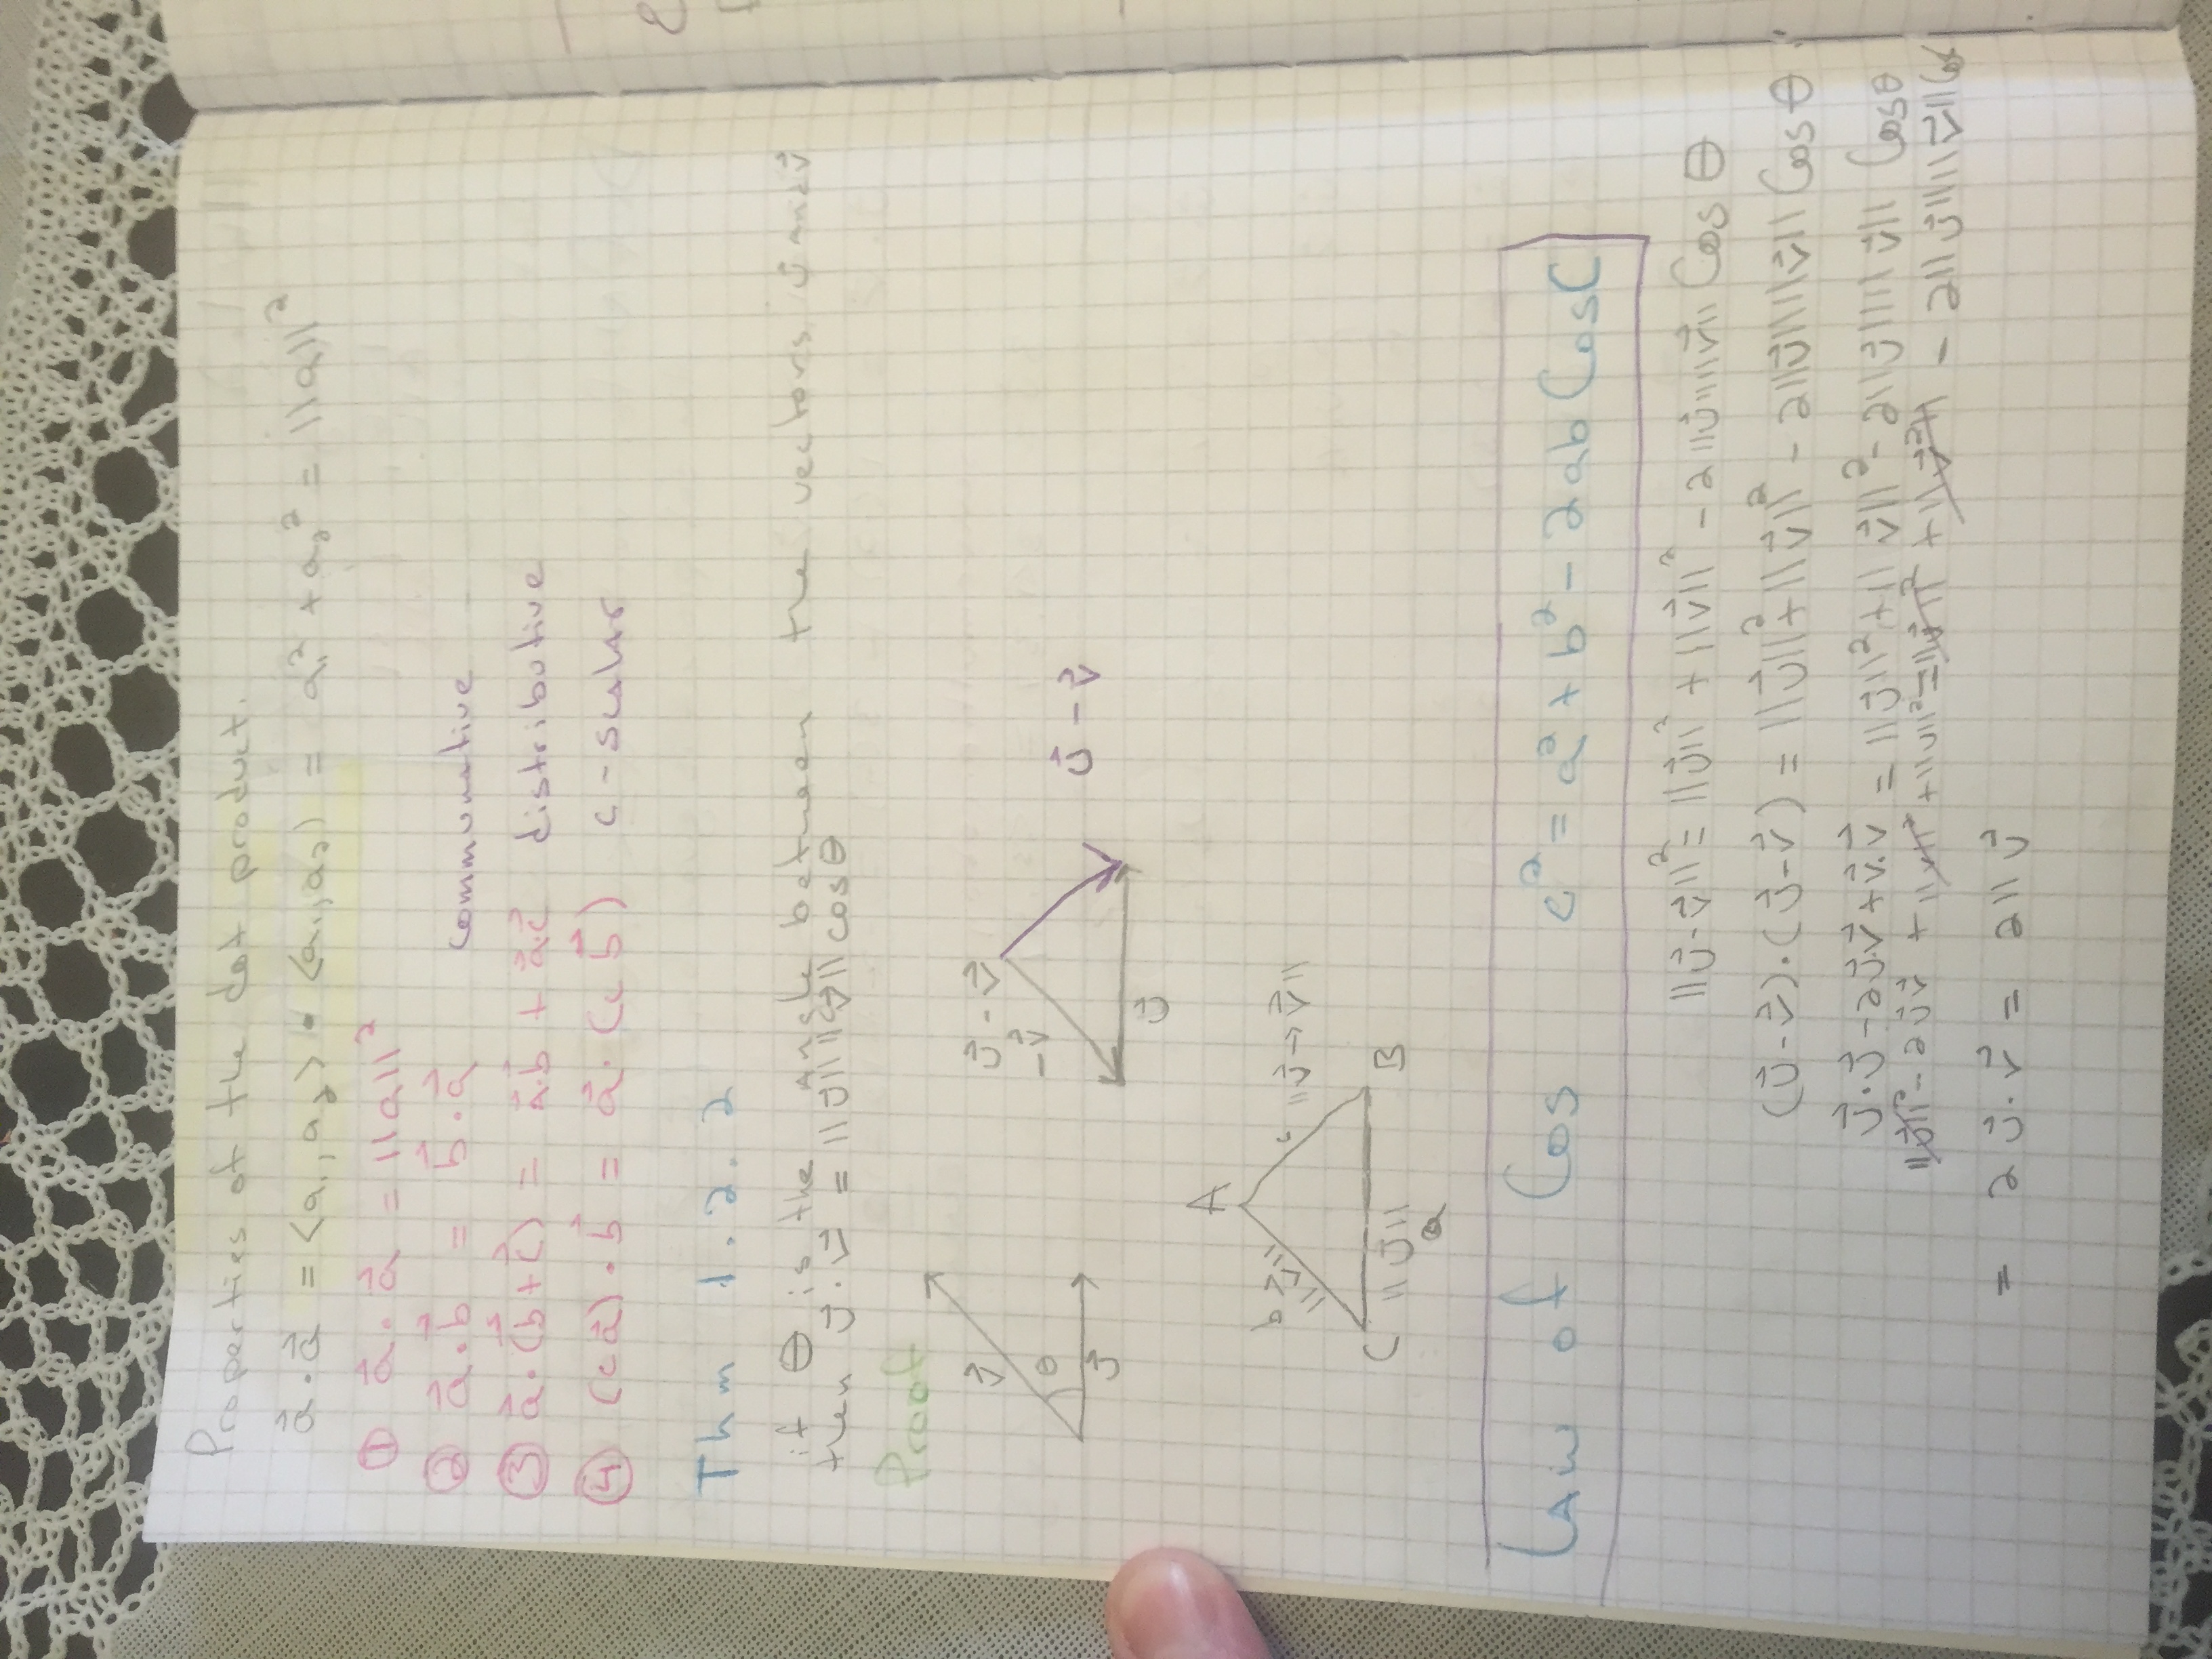 Properties of the dot product.
a⃗ · a⃗ = <a₁, a₂> • <a₁, a₂> = a₁² + a₂² = ||a||²
① a⃗ · a⃗ = ||a||²
② a⃗ · b⃗ = b⃗ · a⃗ communative
③ a⃗ · (b⃗ + c⃗) = a⃗·b⃗ + a⃗·c⃗ distributive
④ (c a⃗) · b⃗ = a⃗ · (c b⃗) c - scalar
Thm 1.2.2
if θ is the angle between the vectors u⃗ and v⃗
then u⃗ · v⃗ = ||u⃗|| ||v⃗|| cos θ
Proof
v⃗
θ
u⃗
u⃗ - v⃗
-v⃗
u⃗ - v⃗
u⃗
A
b ||v⃗||
c ||u⃗ → v⃗||
C ||u⃗|| B
a
Law of Cos c² = a² + b² - 2ab Cos C
||u⃗ - v⃗||² = ||u⃗||² + ||v⃗||² - 2||u⃗|| ||v⃗|| Cos θ
(u⃗ - v⃗) · (u⃗ - v⃗) = ||u⃗||² + ||v⃗||² - 2||u⃗|| ||v⃗|| Cos θ
u⃗ · u⃗ - 2u⃗·v⃗ + v⃗·v⃗ = ||u⃗||² + ||v⃗||² - 2||u⃗|| ||v⃗|| Cos θ
||u⃗||² - 2u⃗v⃗ + ||v||² + ||v||² = ||u⃗||² + ||v⃗²|| - 2||u⃗|| ||v⃗|| Cos
= 2 u⃗ · v⃗ = 2 || u⃗